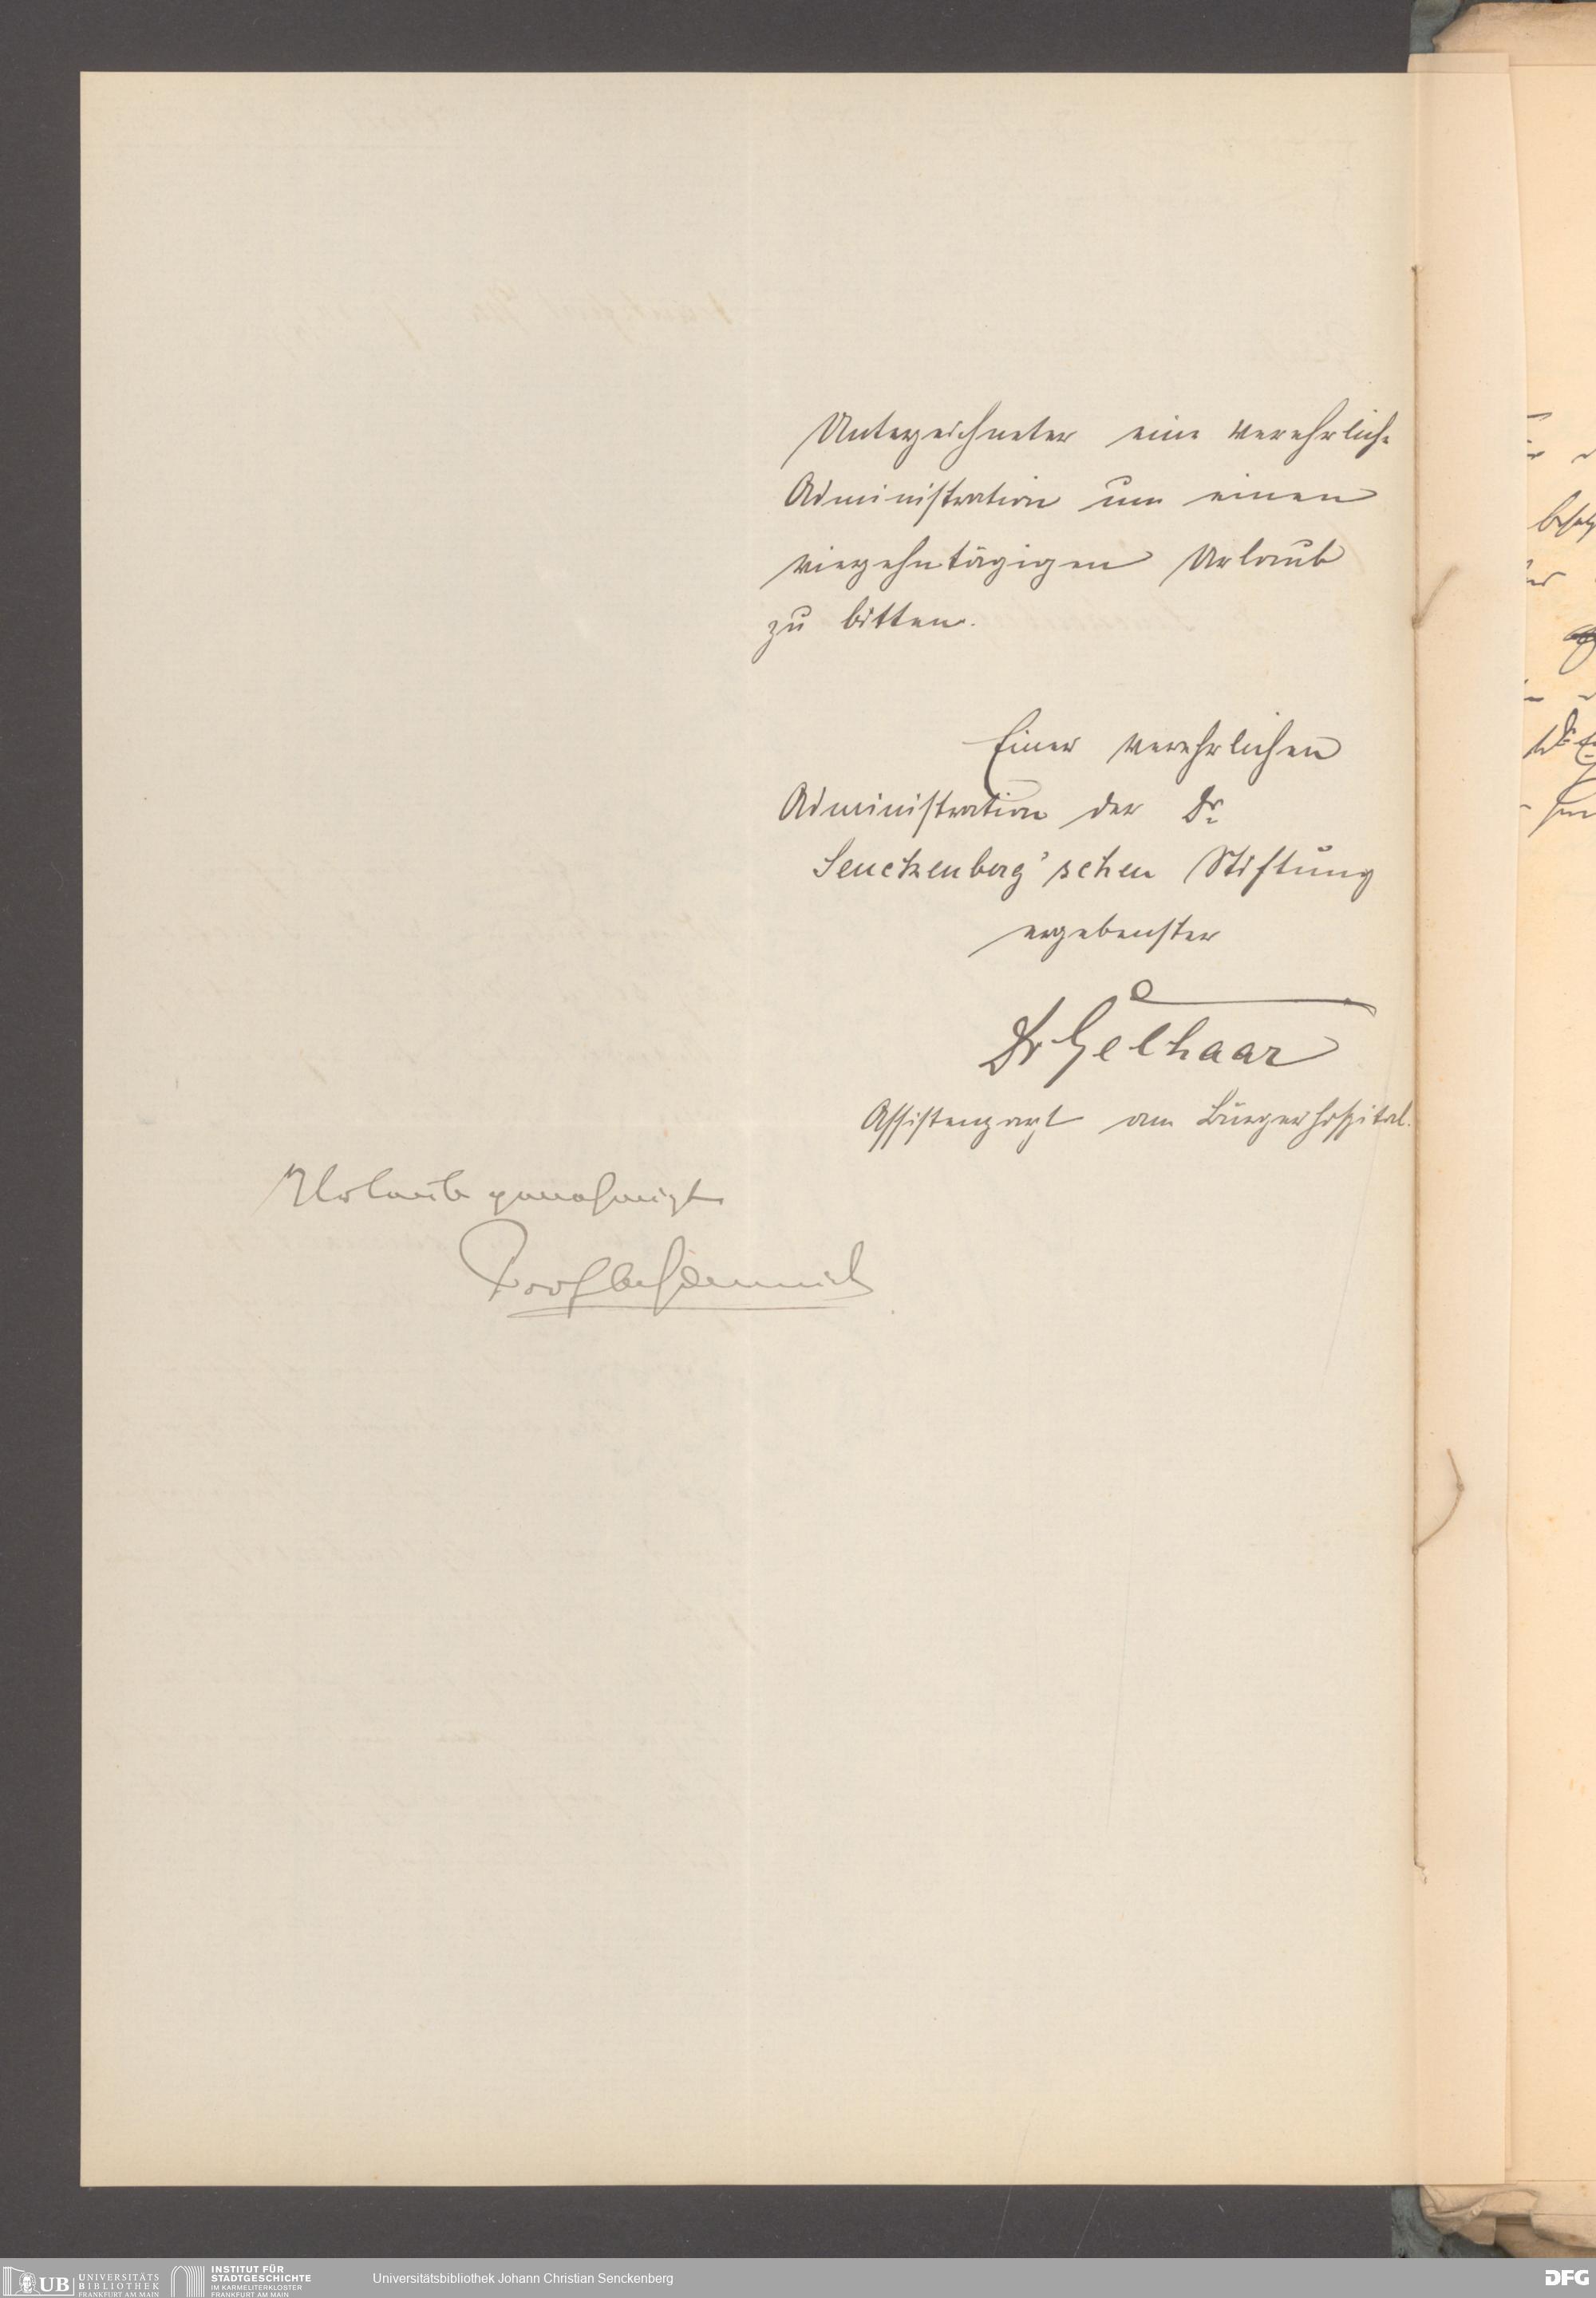 Unterzeichneter eine verehrliche
Administration um einen
vierzehntägigen Urlaub
zu bitten.
Einer verehrlichen
Administration der Dr.
Senckenberg'schen Stiftung
ergebenster
Dr Gelhaar
Assistenzarzt am Bürgerhospital.
Urlaub genehmigt
UB UNIVERSITÄTS
BIBLIOTHEK
FRANKFURT AM MAIN
INSTITUT FÜR
STADTGESCHICHTE
IM KARMELITERKLOSTER
FRANKFURT AM MAIN
Universitätsbibliothek Johann Christian Senckenberg
DFG